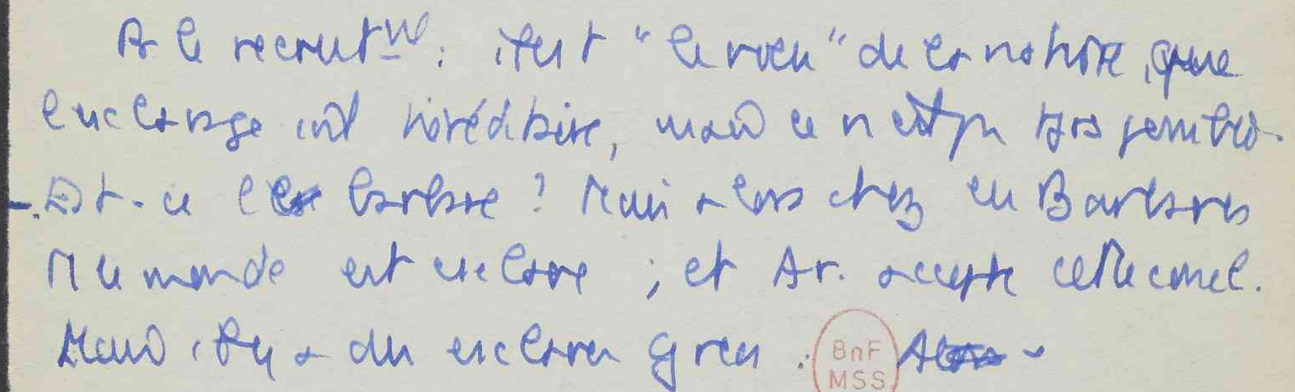 A le recrut^nt : il est "le vœu" de la nature, que
l'esclavage soit héréditaire, mais ce n'est pas tjrs possible.
- Est-ce le barbare ? Mais alors chez les Barbares
tt le monde est esclave ; et Ar. accepte cette concl.
Mais il y a des esclaves grecs :
BnF
MSS